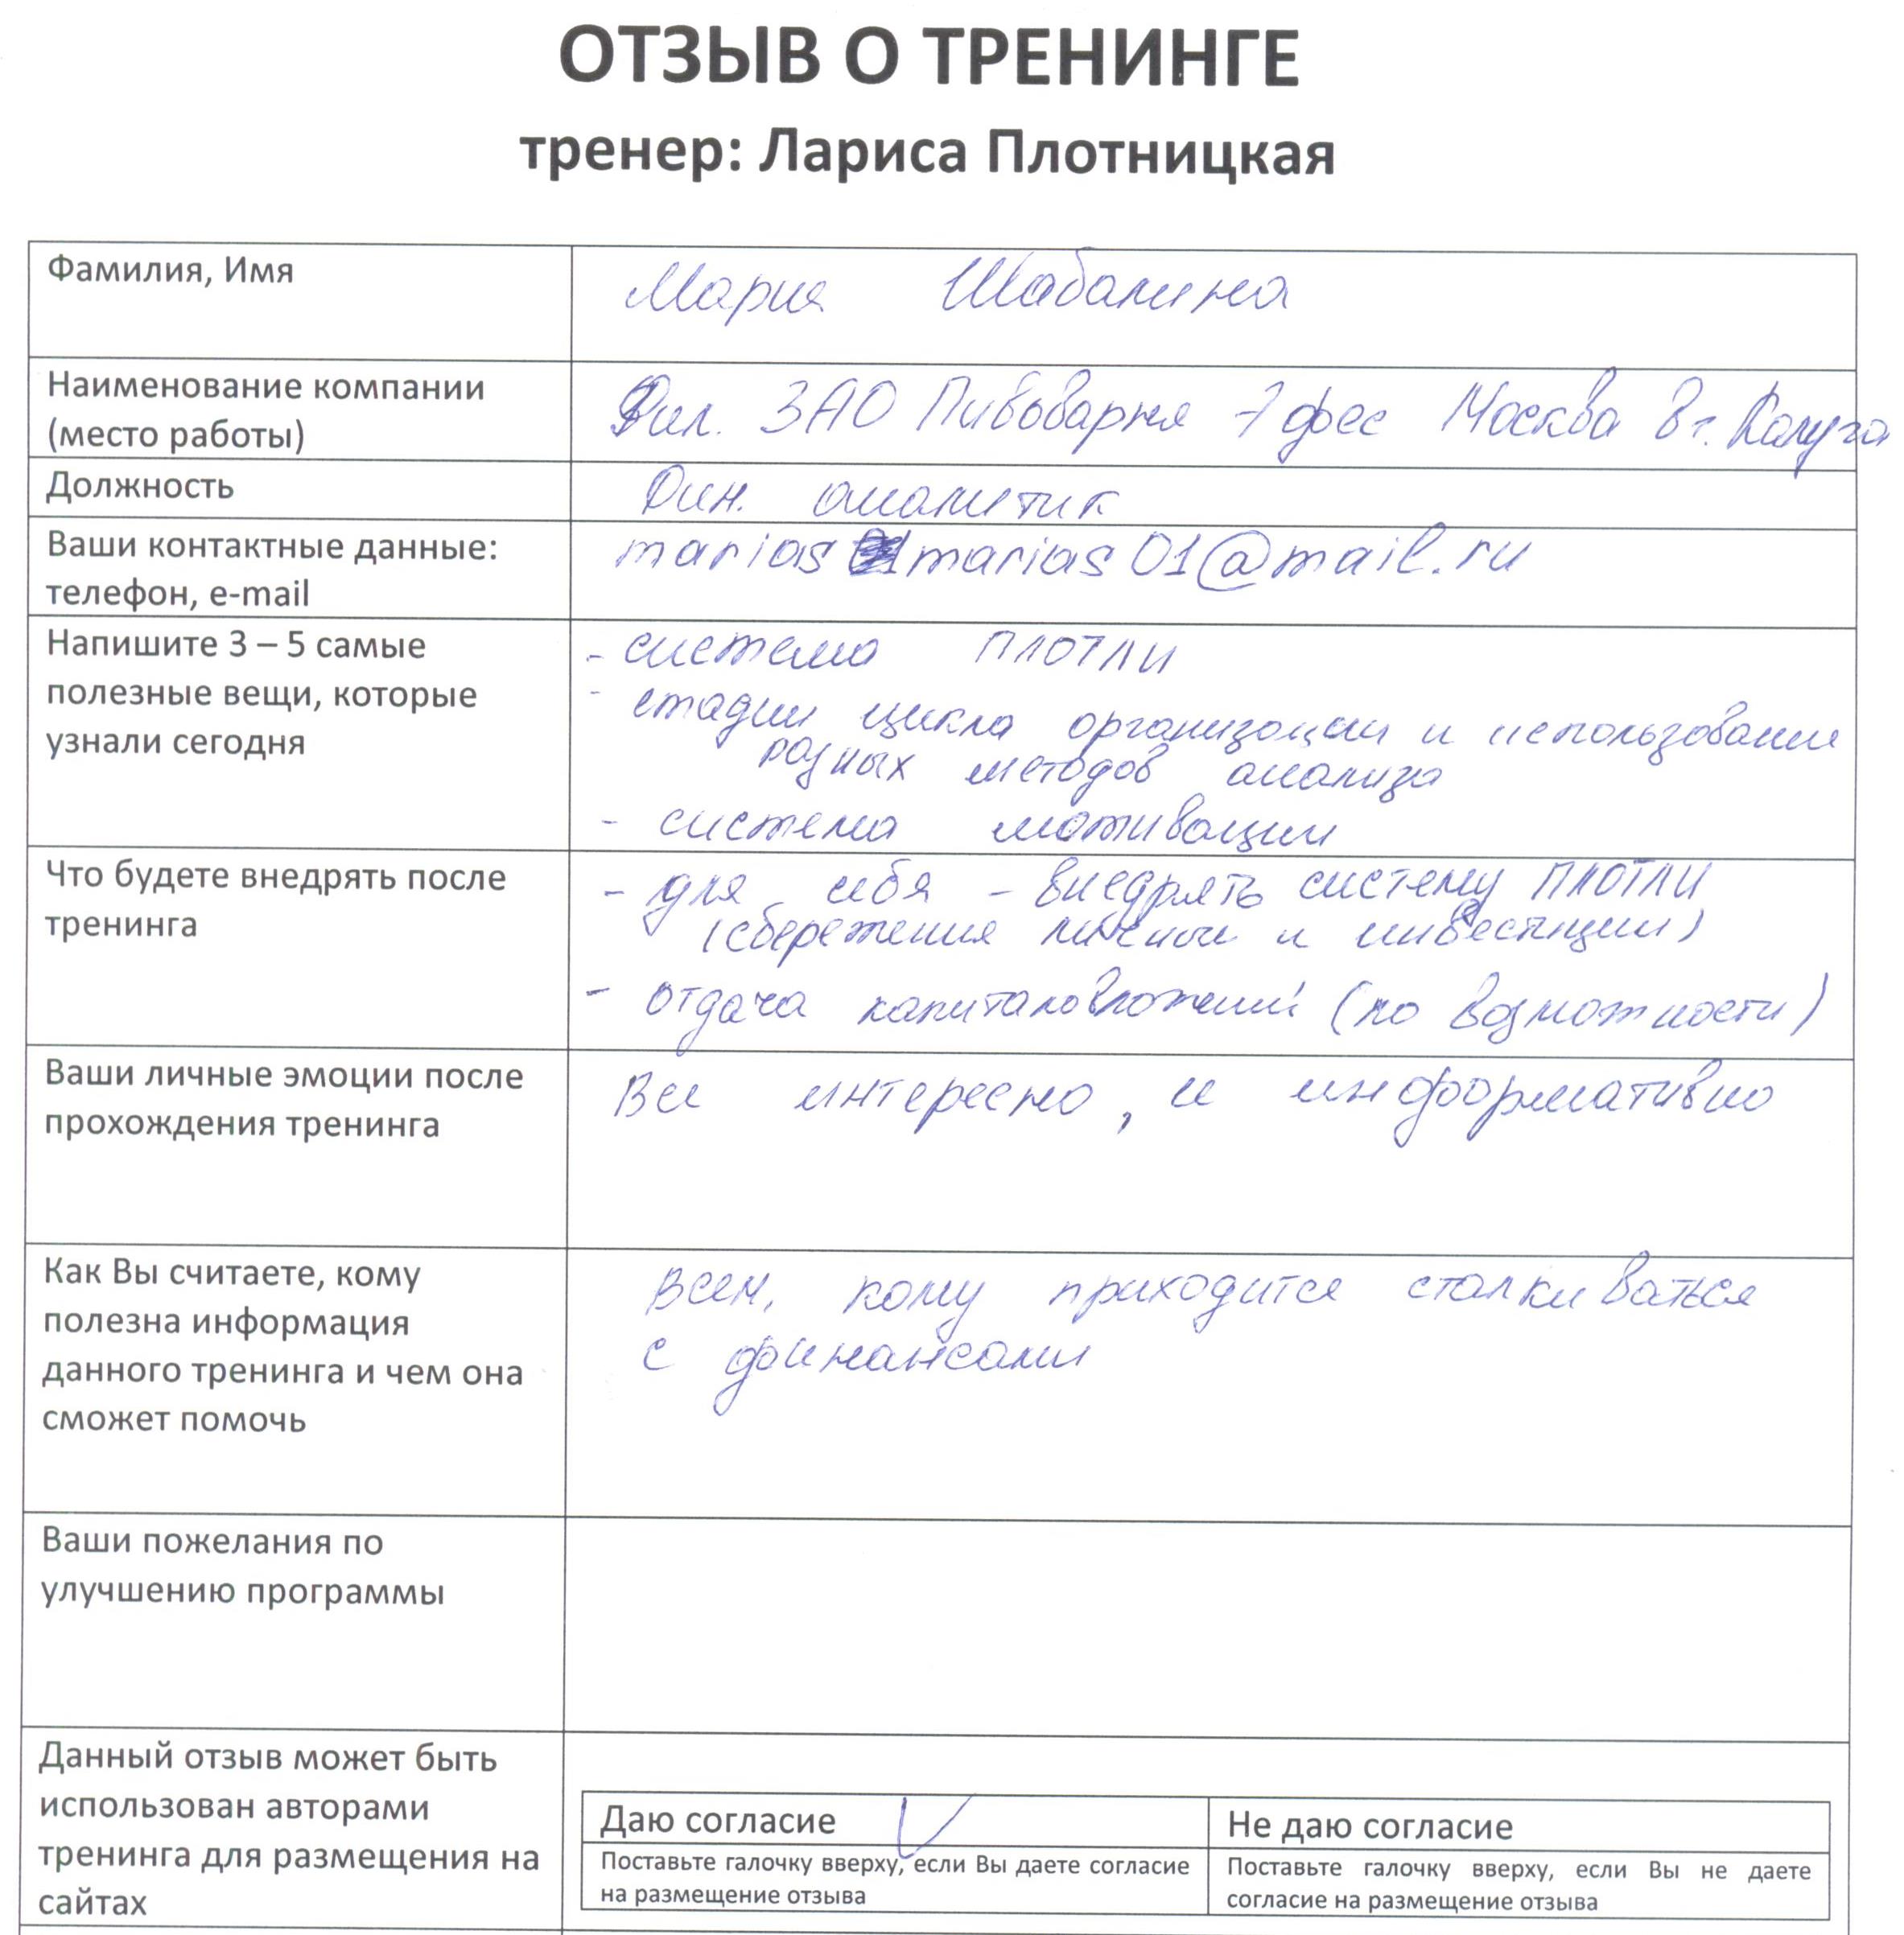 ОТЗЫВ О ТРЕНИНГЕ
тренер: Лариса Плотницкая
Фамилия, Имя
Мария Шабалина
Наименование компании
(место работы)
Фил. ЗАО Пивоварня Москва Эфес в г. Калуга
Должность
Фин. аналитик
Ваши контактные данные:
телефон, e-mail
marias marias01@mail.ru
Напишите 3 – 5 самые
полезные вещи, которые
узнали сегодня
- система ПЛОТЛИ
- стадии цикла организации и использование
разных методов анализа
- система мотивации
Что будете внедрять после
тренинга
- для себя – внедрять систему ПЛОТЛИ
(сбережения личные и инвестиции)
- отдача капиталовложений (по возможности)
Ваши личные эмоции после
прохождения тренинга
Все интересно, и информативно
Как Вы считаете, кому
полезна информация
данного тренинга и чем она
сможет помочь
Всем, кому приходится сталкиваться
с финансами
Ваши пожелания по
улучшению программы
Данный отзыв может быть
использован авторами
тренинга для размещения на
сайтах
Даю согласие
Поставьте галочку вверху, если Вы даете согласие
на размещение отзыва
Не даю согласие
Поставьте галочку вверху, если Вы не даете
согласие на размещение отзыва